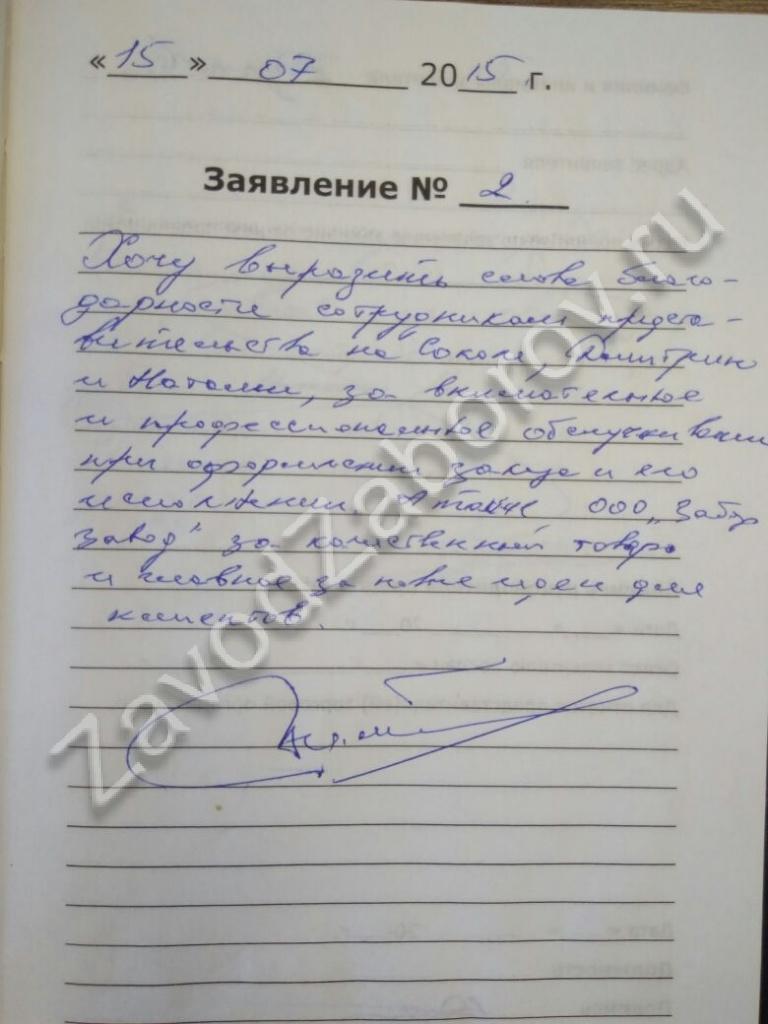 «15» 07 2015 г.
Заявление № 2
Хочу выразить слова благо-
дарности сотрудникам предста-
вительства на Соколе, Дмитрию
и Наталии, за внимательное
и профессиональное обслуживании
при оформлении заказа и его
исполнении. А также ООО „Забор
завод" за качественный товар
и главное за новые идеи для
клиентов.
ZavodZaborov.ru